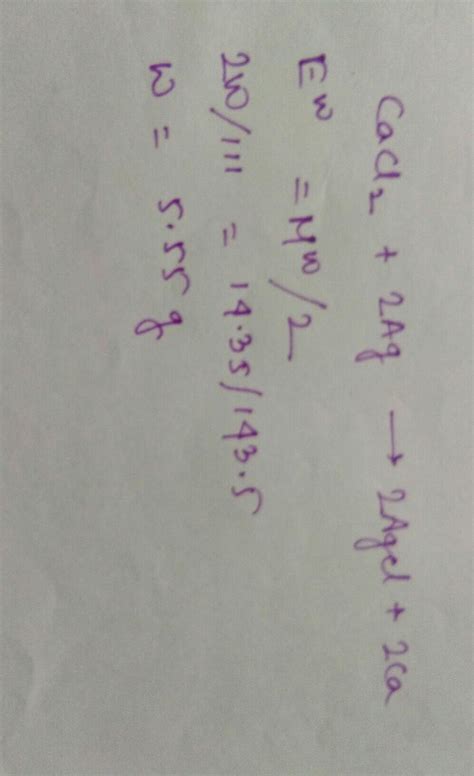 CaCl₂ + 2Ag → 2Agcl + 2Ca
Eᵂ = Mᵂ/2
2W/111 = 14.35/143.5
W = 5.55g